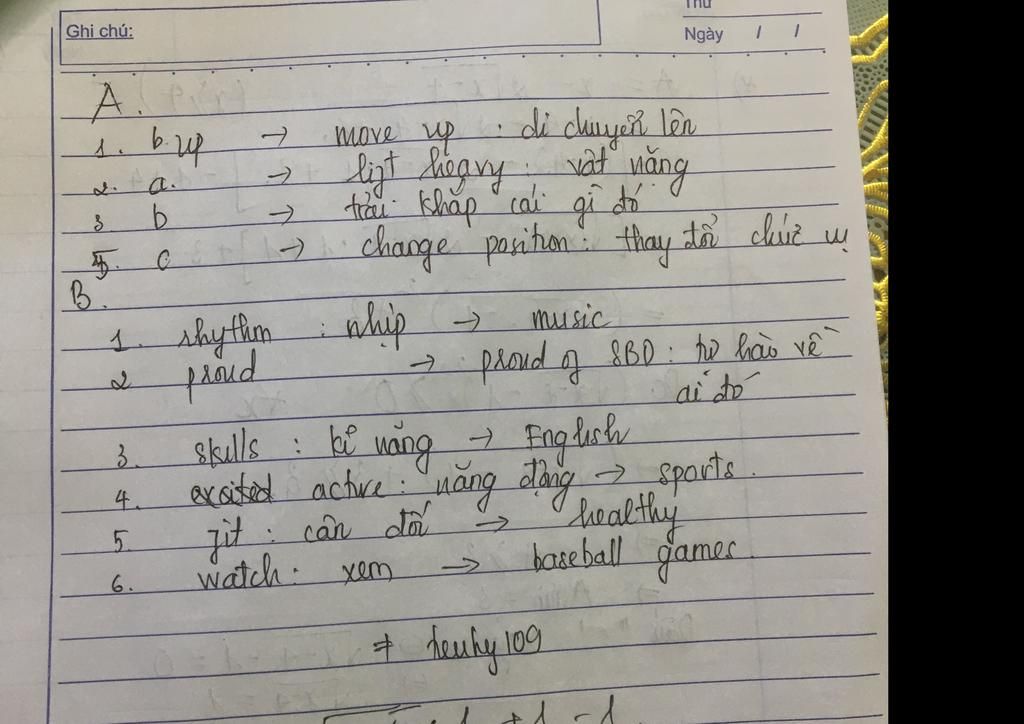 Thứ
Ghi chú:
Ngày / /
A.
1. b. up → move up : di chuyển lên
2. a. → lift heavy : vật nặng
3 b → trải khắp cái gì đó
4. c → change position : thay đổi chức vụ
B.
1. rhythm : nhịp → music
2 proud → proud of SBD : tự hào về
ai đó
3. skills : kĩ năng → English
4. excited active : năng động → sports.
5. fit : cân đối → healthy
6. watch : xem → baseball games.